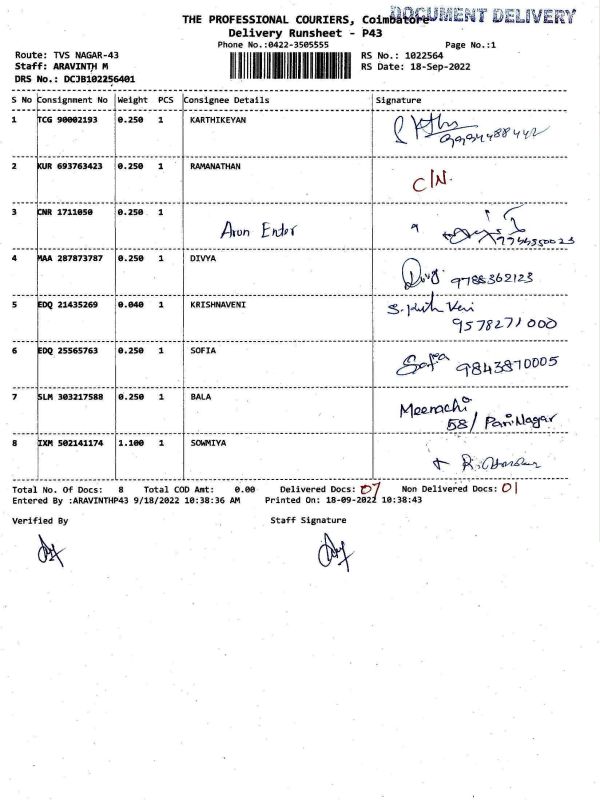 THE PROFESSIONAL COURIERS, Coimbatore
DOCUMENT DELIVERY
Delivery Runsheet - P43
Phone No.:0422-3505555
Page No.:1
Route: TVS NAGAR-43
RS No.: 1022564
Staff: ARAVINTH M
RS Date: 18-Sep-2022
DRS No.: DCJB102256401
S No Consignment No Weight PCS Consignee Details Signature
1 TCG 90002193 0.250 1 KARTHIKEYAN
9994488442
2 KUR 693763423 0.250 1 RAMANATHAN
C/N.
3 CNR 1711050 0.250 1
Arun Enter
4 MAA 287873787 0.250 1 DIVYA
Divy 9788362123
5 EDQ 21435269 0.040 1 KRISHNAVENI
9578271000
6 EDQ 25565763 0.250 1 SOFIA
Sofia 9843870005
7 SLM 303217588 0.250 1 BALA
Meenachi
58/ Pari Nagar
8 IXM 502141174 1.100 1 SOWMIYA
Total No. Of Docs: 8 Total COD Amt: 0.00 Delivered Docs: 07 Non Delivered Docs: 01
Entered By :ARAVINTHP43 9/18/2022 10:38:36 AM Printed On: 18-09-2022 10:38:43
Verified By Staff Signature